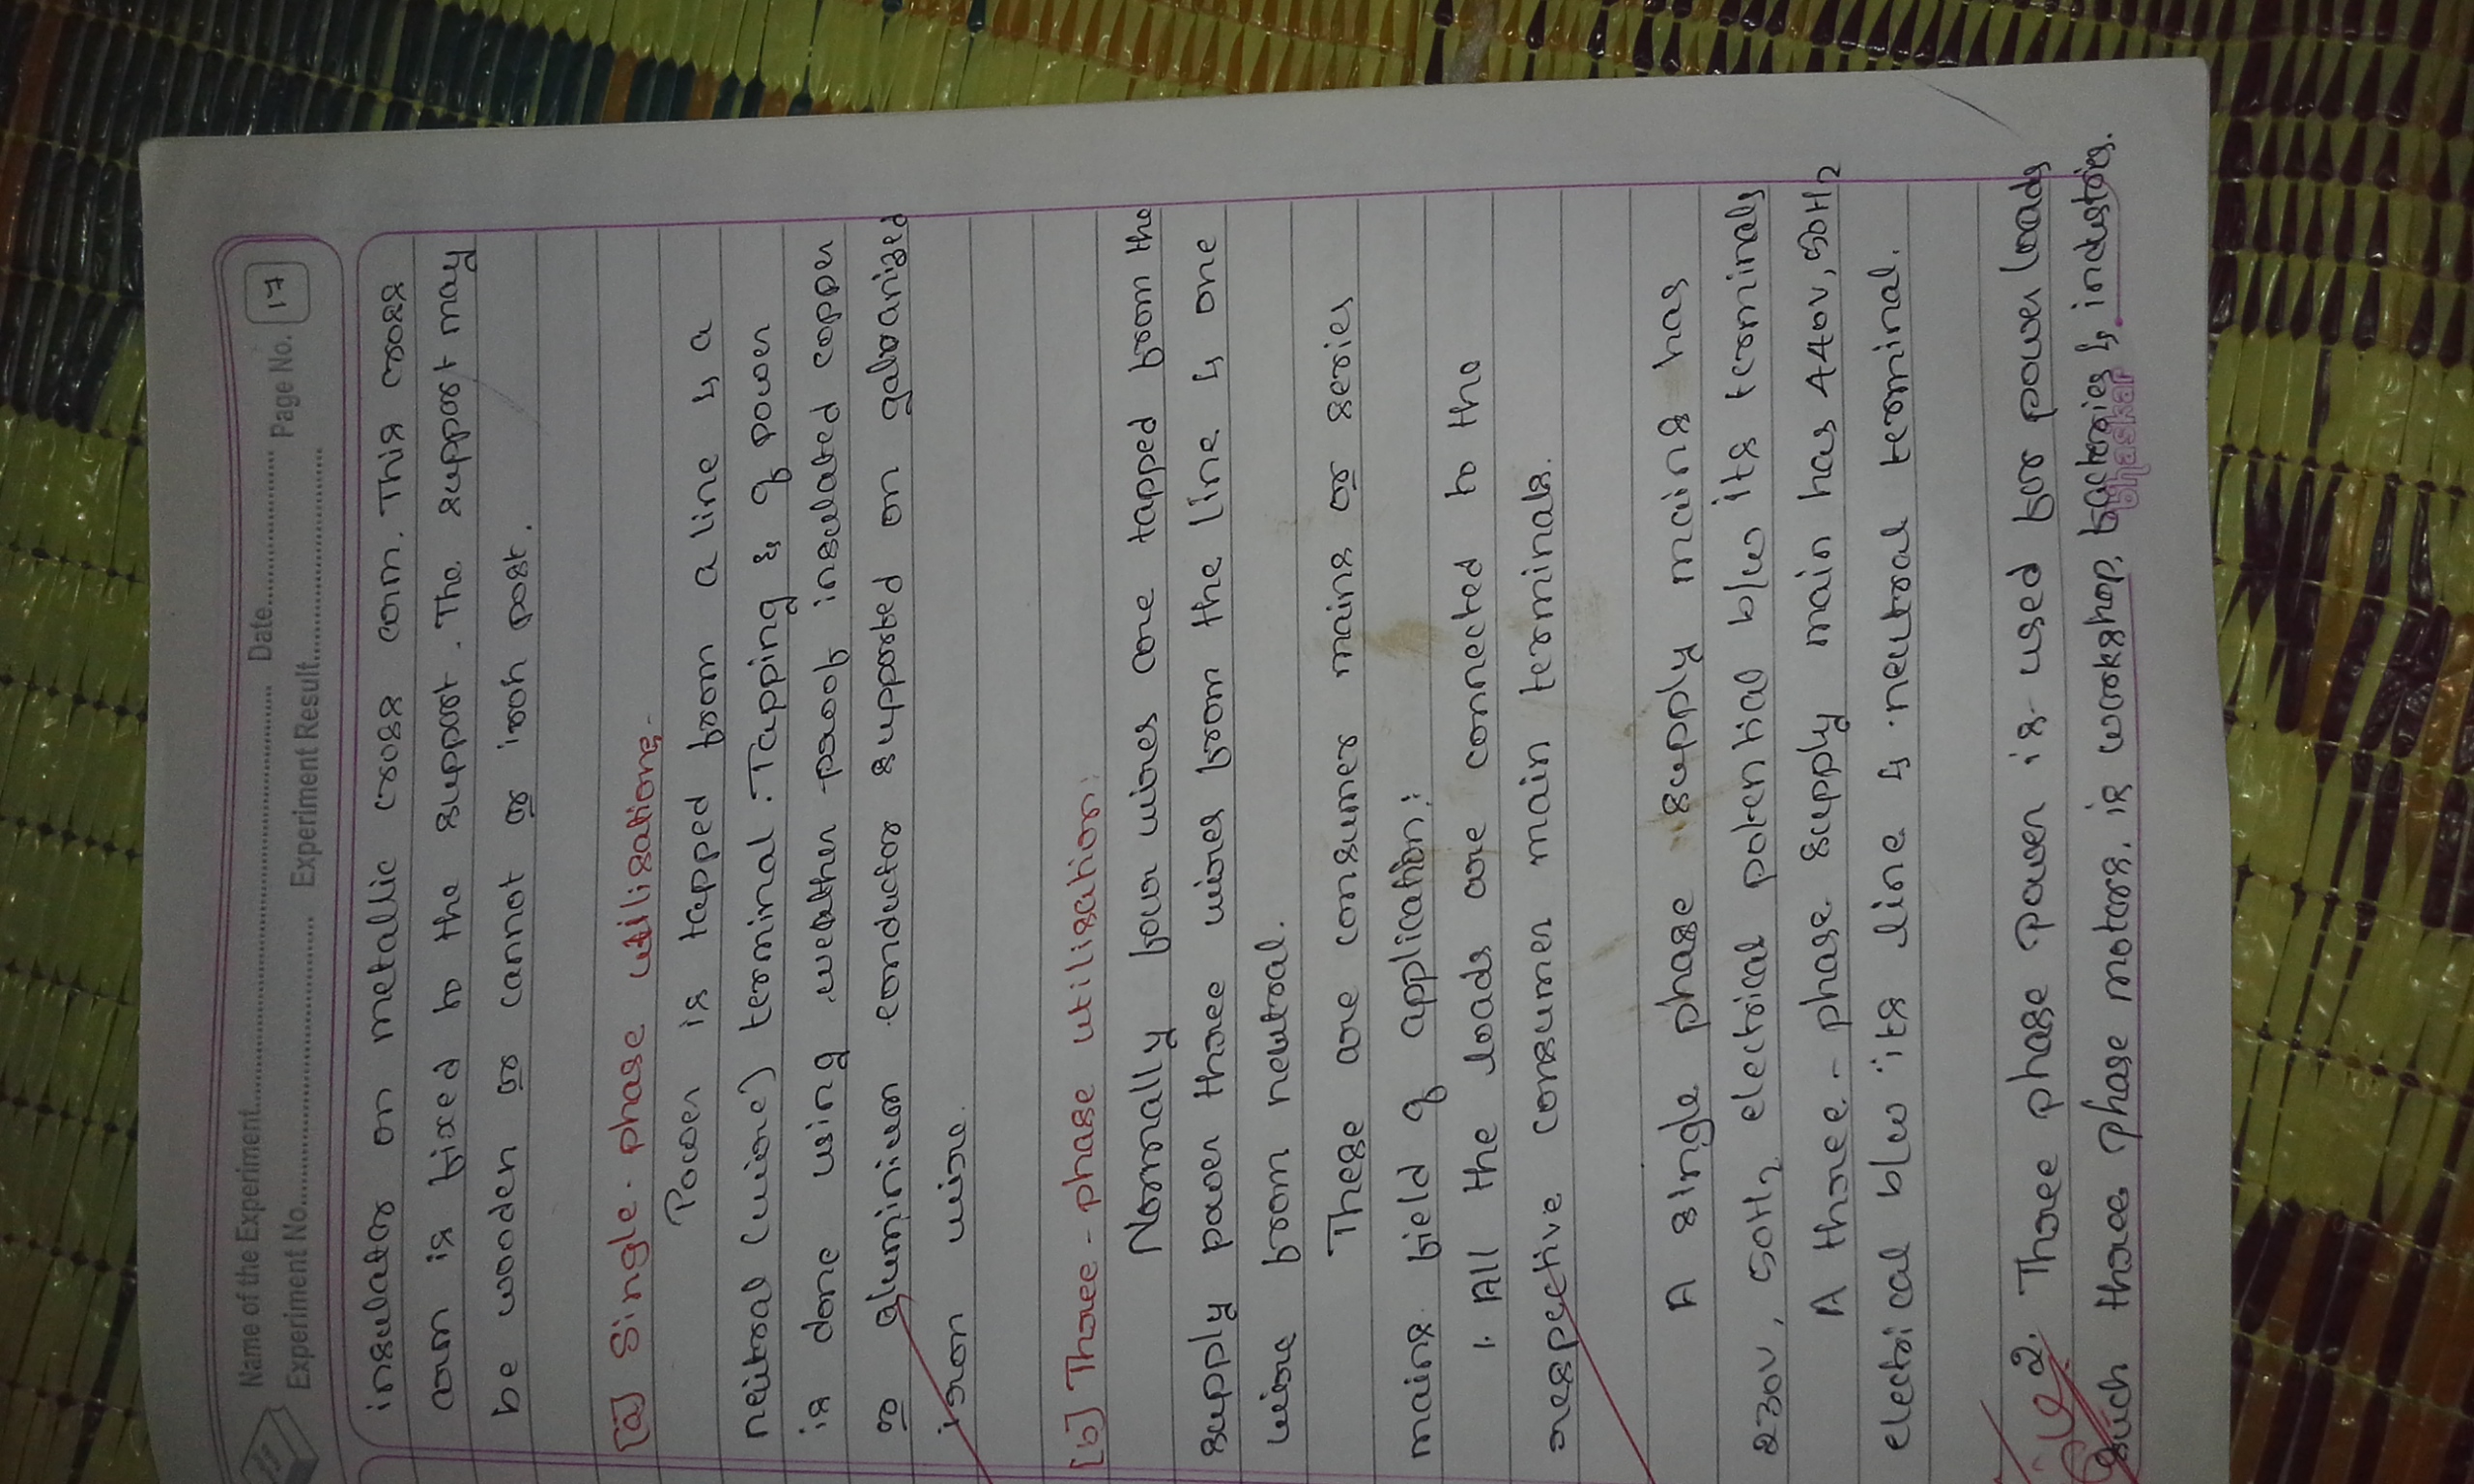 Name of the Experiment................ Date................
Experiment No................ Experiment Result................ Page No. 17
insulator on metallic cross arm. This cross
arm is fixed to the support. The support may
be wooden or cannot or iron post.
[a] Single-phase utilisations-
Power is tapped from a line & a
neutral (wire) terminal. Tapping & of power
is done using weather proof insulated copper
or aluminium conductor supported on galvanized
iron wire.
[b] Three-phase utilisation:
Normally four wires are tapped from the
supply power three wires from the line & one
wire from neutral.
These are consumer mains or series
mains field of application:
1. All the loads are connected to the
respective consumer main terminals.
A single phase supply mains has
230V, 50Hz electrical potential b/w its terminals
A three-phase supply main has 440V, 50Hz
electrical b/w its line & neutral terminal.
2. Three phase power is used for power loads
such three phase motors, is workshop, factories & industries.
Bhaskar